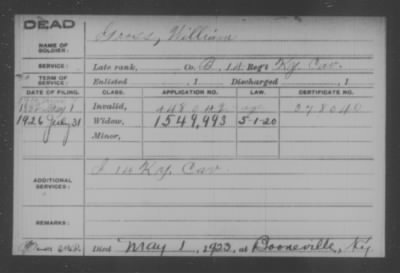 DEAD
Gross, William
NAME OF SOLDIER:
SERVICE: Late rank, Co. B, 1st Reg't Ky. Cav.
TERM OF SERVICE: Enlisted , 1 Discharged , 1
DATE OF FILING. CLASS. APPLICATION NO. LAW. CERTIFICATE NO.
May 1 Invalid, 278040
1926 July 31 Widow, 1549,993 5-1-20
Minor,
ADDITIONAL SERVICES: Ky. Cav.
REMARKS:
Died May 1, 1923, at Booneville, Ky